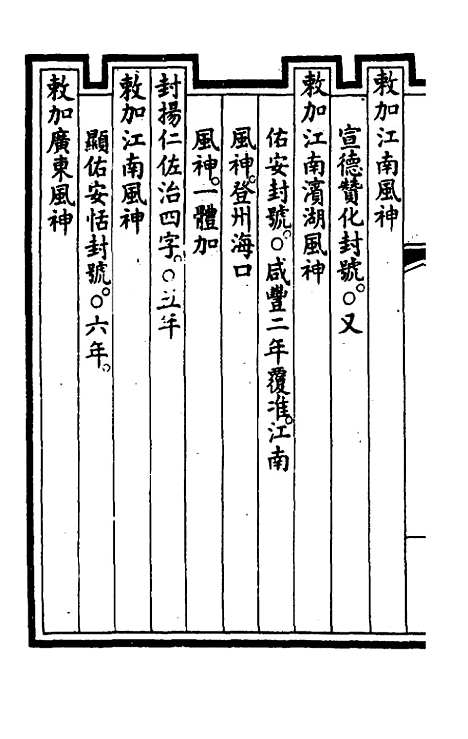 敕加江南風神
宣德贊化封號。○又
敕加江南濱湖風神
佑安封號。○咸豐二年覆准。江南
風神。登州海口
風神。一體加
封揚仁佐治四字。○五年
敕加江南風神
顯佑安恬封號。○六年。
敕加廣東風神